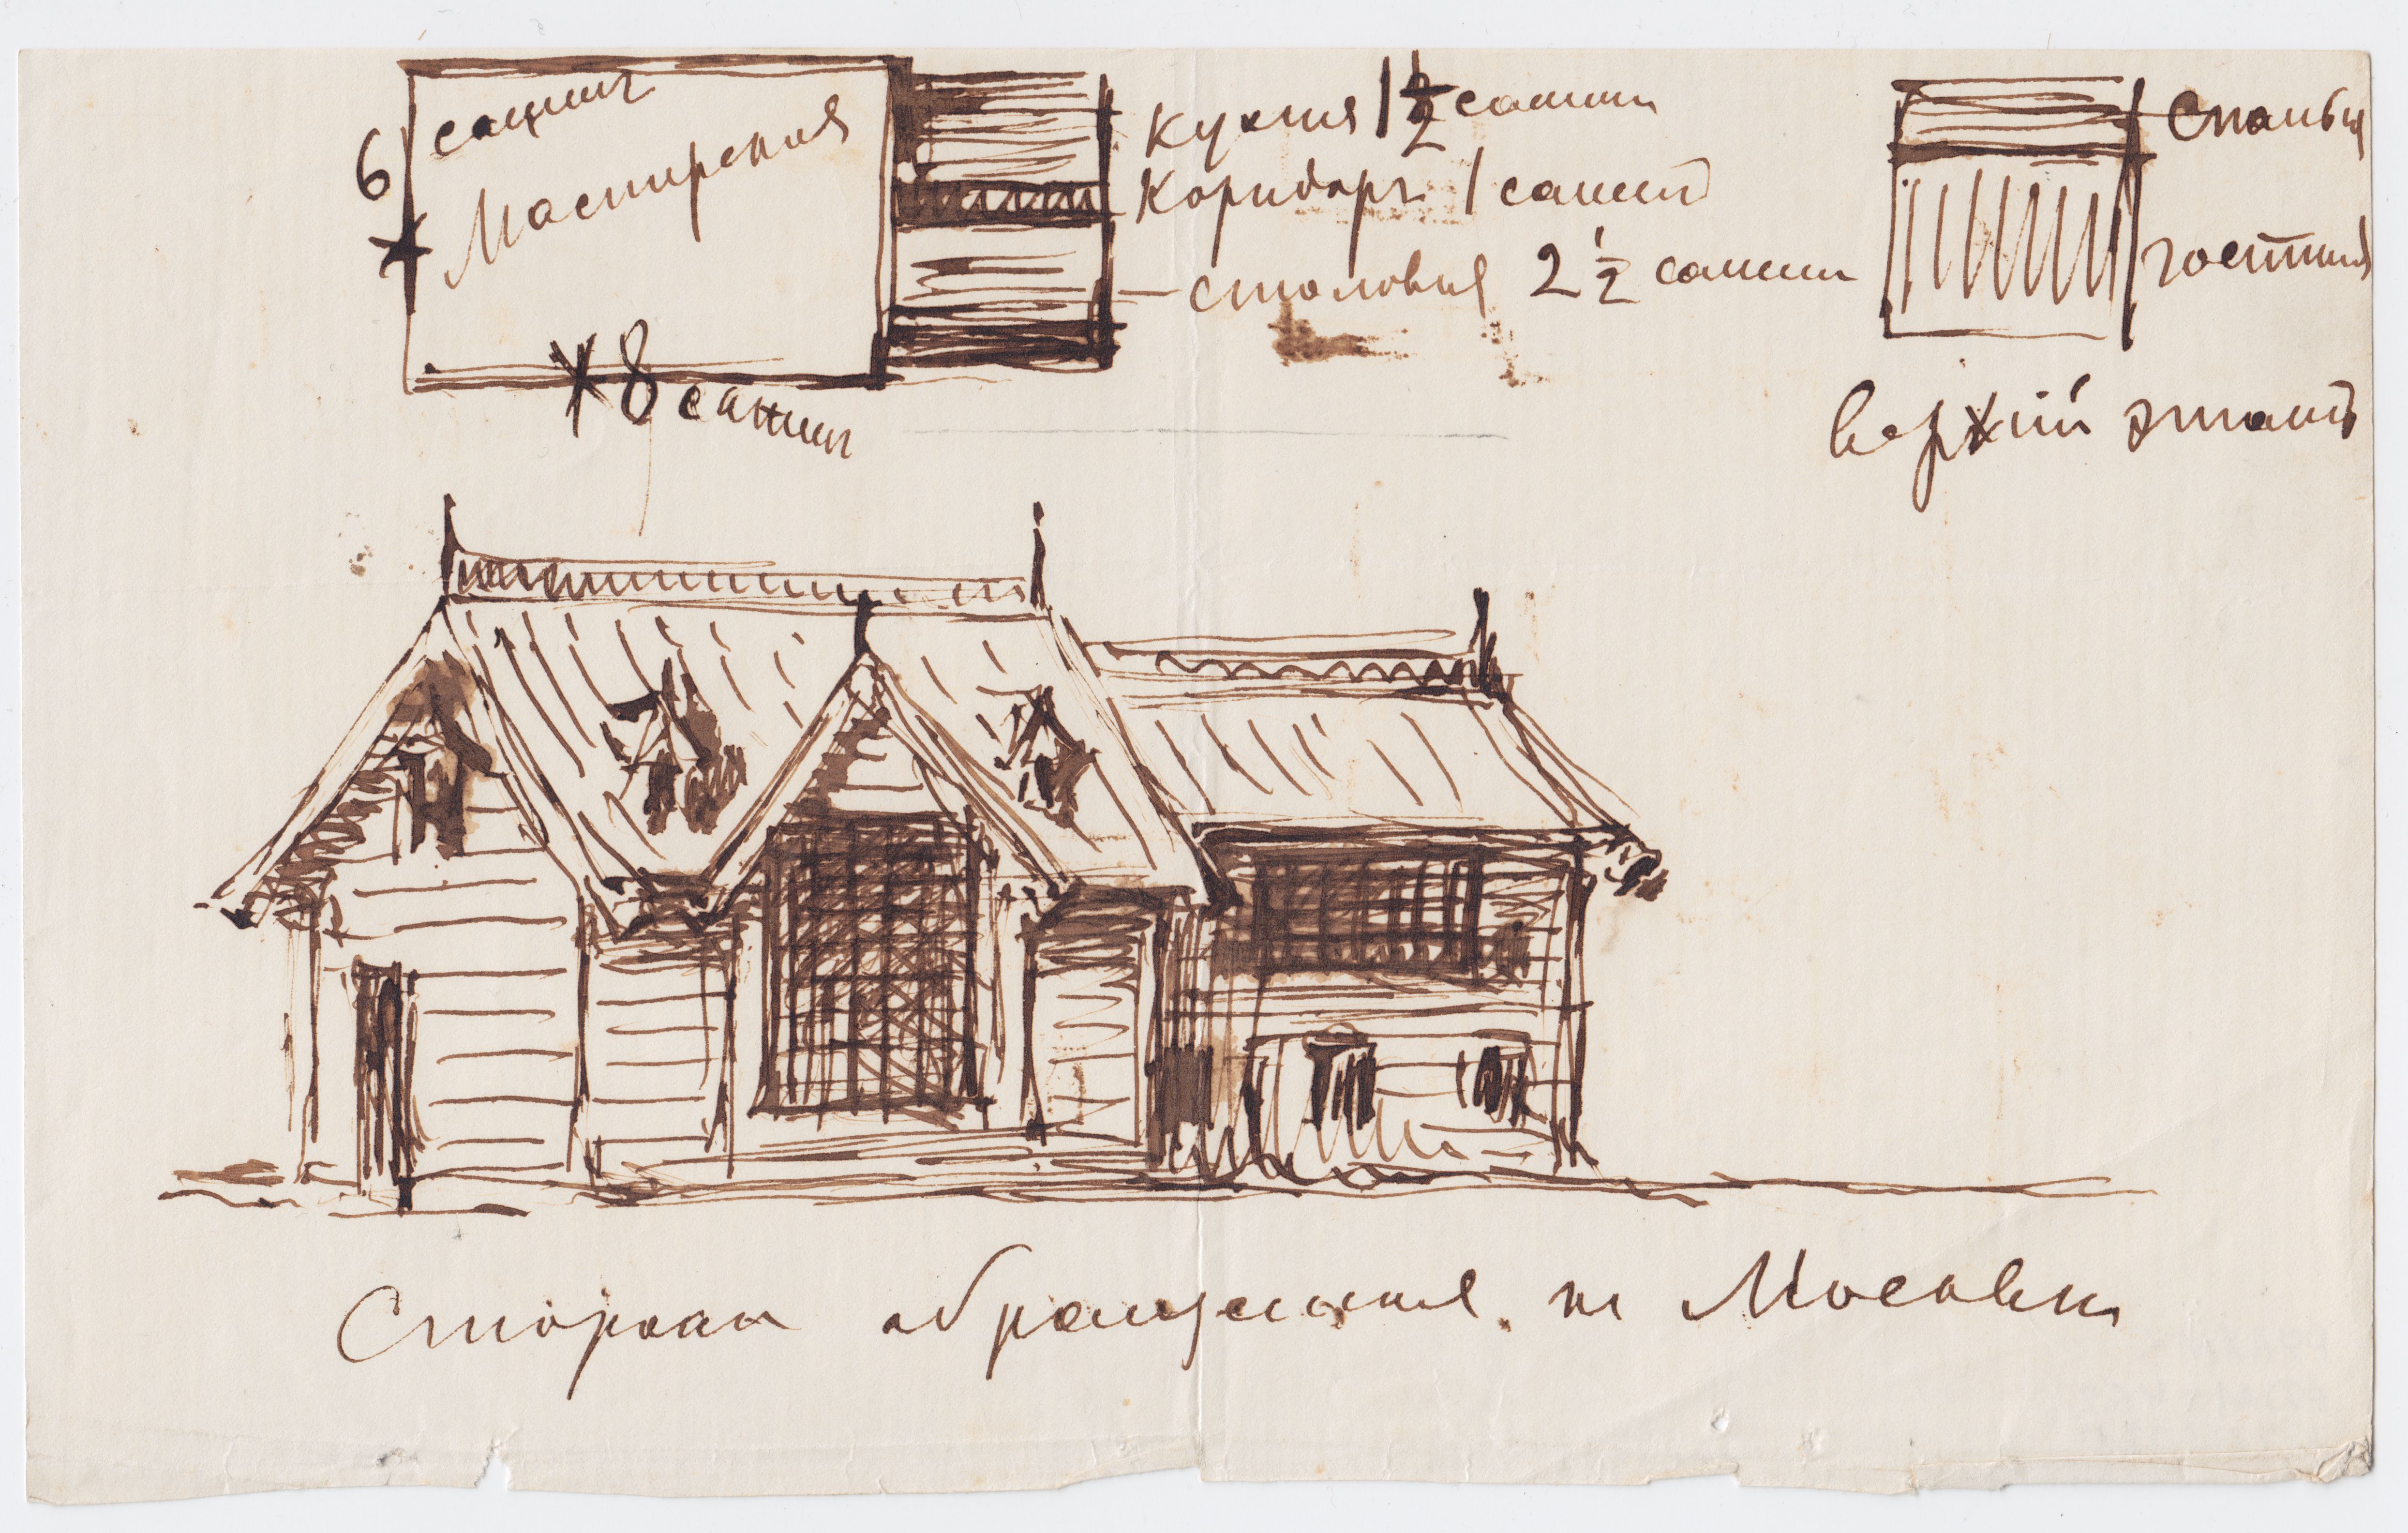 6 сажин
Мастерская
8 сажин
Кухня 1 1/2 сажин
Коридоръ 1 сажин
столовая 2 1/2 сажин
Спальня
гостиная
верхнiй этажъ
Сторона обращенная к Москвы